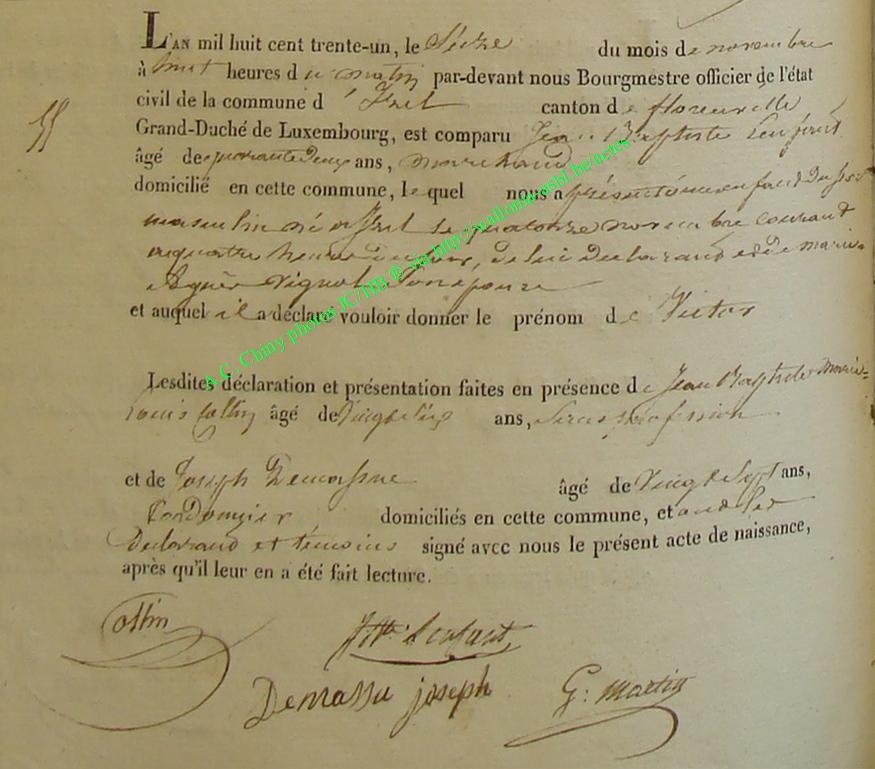 L'AN mil huit cent trente-un, le Seize du mois de novembre
à huit heures du matin par-devant nous Bourgmestre officier de l'état
civil de la commune d'Izel canton de florenville
Grand-Duché de Luxembourg, est comparu Jean Baptiste Lenfant
âgé de quarante deux ans, marchand
domicilié en cette commune, lequel nous a présenté un enfant du sexe
masculin né à Izel le quatorze novembre courant
à quatre heures du soir, de lui déclarant et de marie
Agnès Vignol son épouse
et auquel il a déclaré vouloir donner le prénom de Victor
Lesdites déclaration et présentation faites en présence de Jean Baptiste Marie
Louis Collin âgé de Vingt six ans, Sans profession
et de Joseph Demassue âgé de Vingt Sept ans,
Cordonnier domiciliés en cette commune, et ont Les
Déclarant et témoins signé avec nous le présent acte de naissance,
après qu'il leur en a été fait lecture.
Collin
Lenfant
Demassue joseph G: martin
A.C. Chiny photos JC/HB ® via http://wallonia-asbl.be/actes